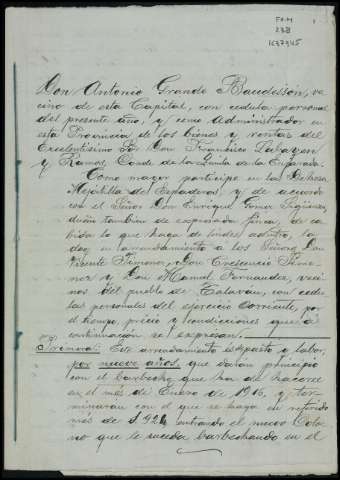 Don Antonio Grande Baudesson, ve
cino de esta Capital, con cedula personal
del presente año, y como Administrador en
esta Provincia de los bienes y rentas del
Excelentisimo Sr Don Francisco Zabalzan
y Ramos, Conde de la Quinta de la Enjarada.
Como mayor participe en la Dehesa
Mojatilla de Espaderos, y de acuerdo
con el Señor Don Enrique
dueño tambien de expresada finca, de ca
bida lo que haga de lindes adentro, la
doy en arrendamiento á los Señores Don
Vicente Don Crescencio
y Don Manuel Fernandez, veci
nos del pueblo de Talavan, con cedu
las personales del ejercicio corriente, por
el tiempo, precio y condiciones que á
continuación se expresan.
Primera: Este arrendamiento es á pasto y labor,
por nueve años, que daran principio
con el barbecho que ha de hacerse
en el más de Enero de 1916, y ter
minaran con el que se haga en referido
más de 1924 entrando el nuevo Colo
no que le suceda barbechando en el